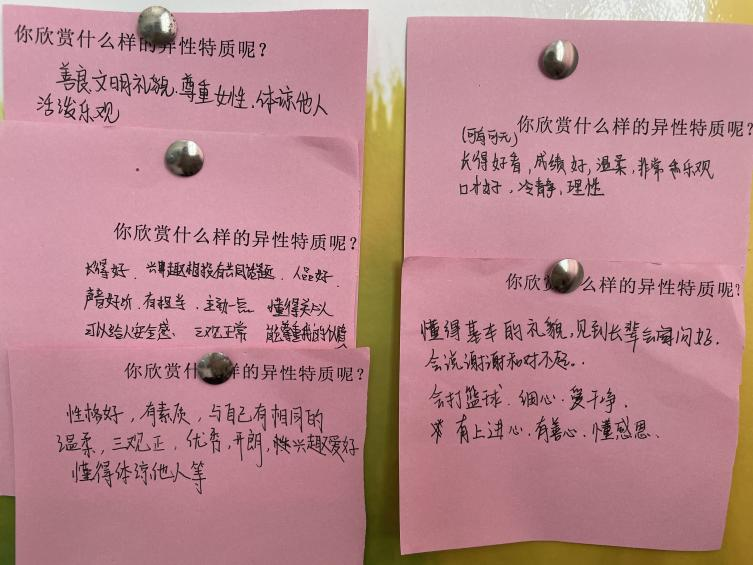 你欣赏什么样的异性特质呢?
善良.文明礼貌.尊重女性.体谅他人
活泼乐观
你欣赏什么样的异性特质呢?
长得好. 兴趣相投有共同话题. 人品好.
声音好听. 有担当. 主动一点. 懂得关心人
可以给人安全感. 三观正常 能尊重我的
你欣赏什么样的异性特质呢?
性格好,有素质,与自己有相同的
温柔,三观正,优秀,开朗,兴趣爱好
懂得体谅他人等
你欣赏什么样的异性特质呢?
(可有可无)
长得好看,成绩好,温柔,非常乐观
口才好,冷静,理性
你欣赏什么样的异性特质呢?
懂得基本的礼貌,见到长辈会问好.
会说谢谢和对不起..
会打篮球.细心.爱干净.
有上进心.有善心.懂感恩.